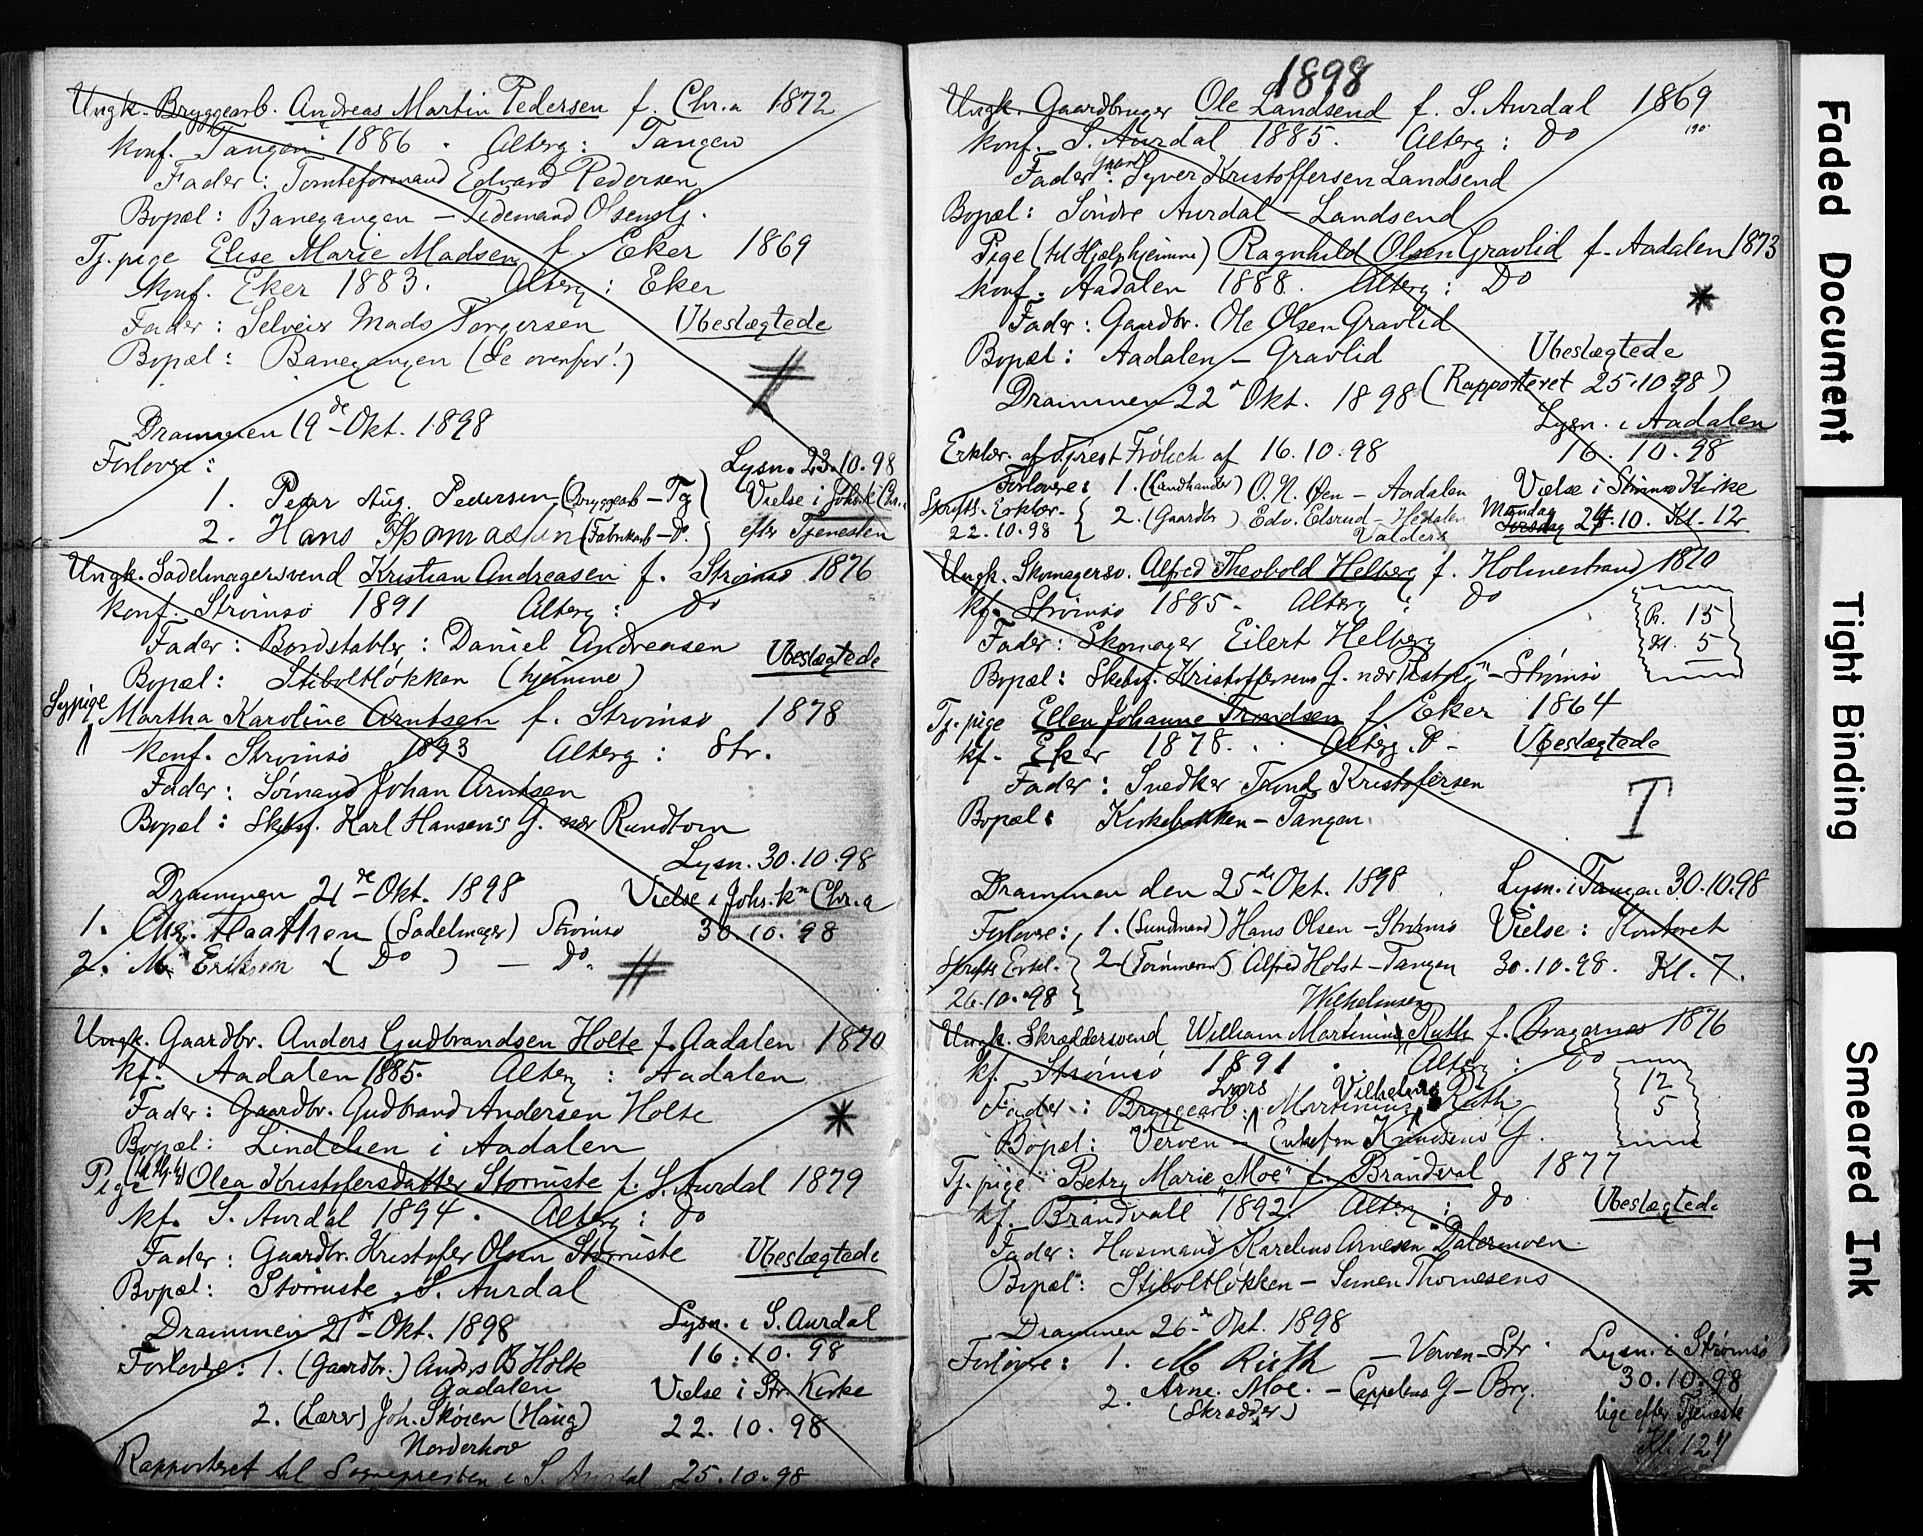 Ungk. Bryggearb. Andreas Martin Pedersen f. Chr.a 1872
konf. Tangen 1886. Alterg: Tangen
Fader: Tomteformand Edvard Pedersen
Bopæl: Banegangen – Tidemand Olsensg.
Tj.pige Elise Marie Madsen f. Eker 1869
konf. Eker 1883. Alterg: Eker
Fader: Selveier Mads Torgersen Ubeslægtede
Bopæl: Banegangen (Se ovenfor!)
Drammen 19de Okt. 1898
Forlovere: Lysn. 23.10.98
1. Peder Aug. Pedersen (Bryggearb – Tg) Vielse i Johs.k. Chr.a
2. Hans Thomassen (Fabrikarb – Do.) efter Tjenesten
Ungk. Sadelmagersvend Kristian Andreasen f. Strømsø 1876
konf. Strømsø 1891 Alterg: Do
Fader: Bordstabler: Daniel Andreasen
Bopæl: Stiboltløkken (hjemme) Ubeslægtede
Sypige Martha Karoline Arntsen f. Strømsø 1878
konf. Strømsø 1893 Alterg: Str.
Fader: Sømand Johan Arntsen
Bopæl: Skibsf. Karl Hansen's G. nær Rundtom
Lysn. 30.10.98
Drammen 21de Okt. 1898 Vielse i Johs. kn Chr.a
1. Chr. Flaathen (Sadelmager) Strømsø 30.10.98
2. M. Eriksen (Do) — Do.
Ungk. Gaardbr. Anders Gudbrandsen Holte f. Aadalen 1870
kf. Aadalen 1885. Alterg: Aadalen
Fader: Gaardbr. Gudbrand Andersen Holte
Bopæl: Lindelien i Aadalen
Pige Olea Kristofersdatter Storruste f. S. Aurdal 1879
kf. S. Aurdal 1894. Alterg: Do
Fader: Gaardbr. Kristofer Olsen Storruste Ubeslægtede
Bopæl: Storruste S. Aurdal
Drammen 21de Okt. 1898 Lysn. i S. Aurdal
Forlovere: 1. (Gaardbr.) Anders B Holte 16.10.98
Aadalen Vielse i Str. Kirke
2. (Lærer) Joh. Skøien (Haug) 22.10.98
Norderhov
Rapporteret til Sognepresten i S. Aurdal 25.10.98
1898
Ungk. Gaardbruger Ole Landsend f. S. Aurdal 1869
konf. S. Aurdal 1885. Alterg: Do
Fader: Gaardbr. Syver Kristoffersen Landsend
Bopæl: Søndre Aurdal – Landsend
Pige (til Hjælp hjemme) Ragnhild Olsen Gravlid f. Aadalen 1873
konf. Aadalen 1888. Alterg: Do
Fader: Gaardbr. Ole Olsen Gravlid
Bopæl: Aadalen – Gravlid Ubeslægtede
Drammen 22 Okt. 1898 (Rapporteret 25.10.98)
Lysn. i Aadalen
Erklær. af Sgprest Frölich af 16.10.98 16.10.98
Forlovere: 1. (Landhandler) O. N. Øen – Aadalen Vielse i Strømsø Kirke
Skriftl. Erklær. 22.10.98 2. (Gaardbr) Edv. Elsrud – Hedalen Valders Mandag 24.10. Kl. 12
Ungk. Skomagersv. Alfred Theobold Helberg f. Holmestrand 1870
kf. Strømsø 1885. Alterg: Do
Fader: Skomager Eilert Helberg
Pr. 15
Kl. 5
Bopæl: Skibsf. Kristoffersens G. – Strømsø
Tj.pige Ellen Johanne Trondsen f. Eker 1864
kf. Eker 1878. Alterg. Do – Ubeslægtede
Fader: Snedker Trond Kristofersen
Bopæl: Kirkebakken – Tangen T
Drammen den 25de Okt. 1898 Lysn. i Tangen 30.10.98
Forlovere: 1. (Sundmand) Hans Olsen – Strømsø Vielse: Kontoret
Skriftl. Erkl. 26.10.98 2. (Tømmerm) Alfred Holst – Tangen 30.10.98. Kl. 7.
Wilhelmsen
Ungk. Skræddersvend William Martinius Ruth f. Bragernes 1876
kf. Strømsø 1891. Alterg: Do
Fader: Bryggearb. Lars Martinius Vilhelm Ruth
12
5
Bopæl: Verven – Enkefru Knudsens G.
Tj.pige Betzy Marie Moe f. Brandval 1877
kf. Brandvall 1892. Alterg: Do Ubeslægtede
Fader: Husmand Karelius Arnesen Dalermoen
Bopæl: Stiboltløkken – Simen Thomesens
Drammen 26 Okt. 1898
Forlovere: 1. M Ruth – Verven – Str. Lysn. i Strømsø
2. Arne. Moe. – Cappelens G – Brg. 30.10.98
(Skrædder) lige efter Tjeneste
Kl. 12½
Faded Document
Tight Binding
Smeared Ink